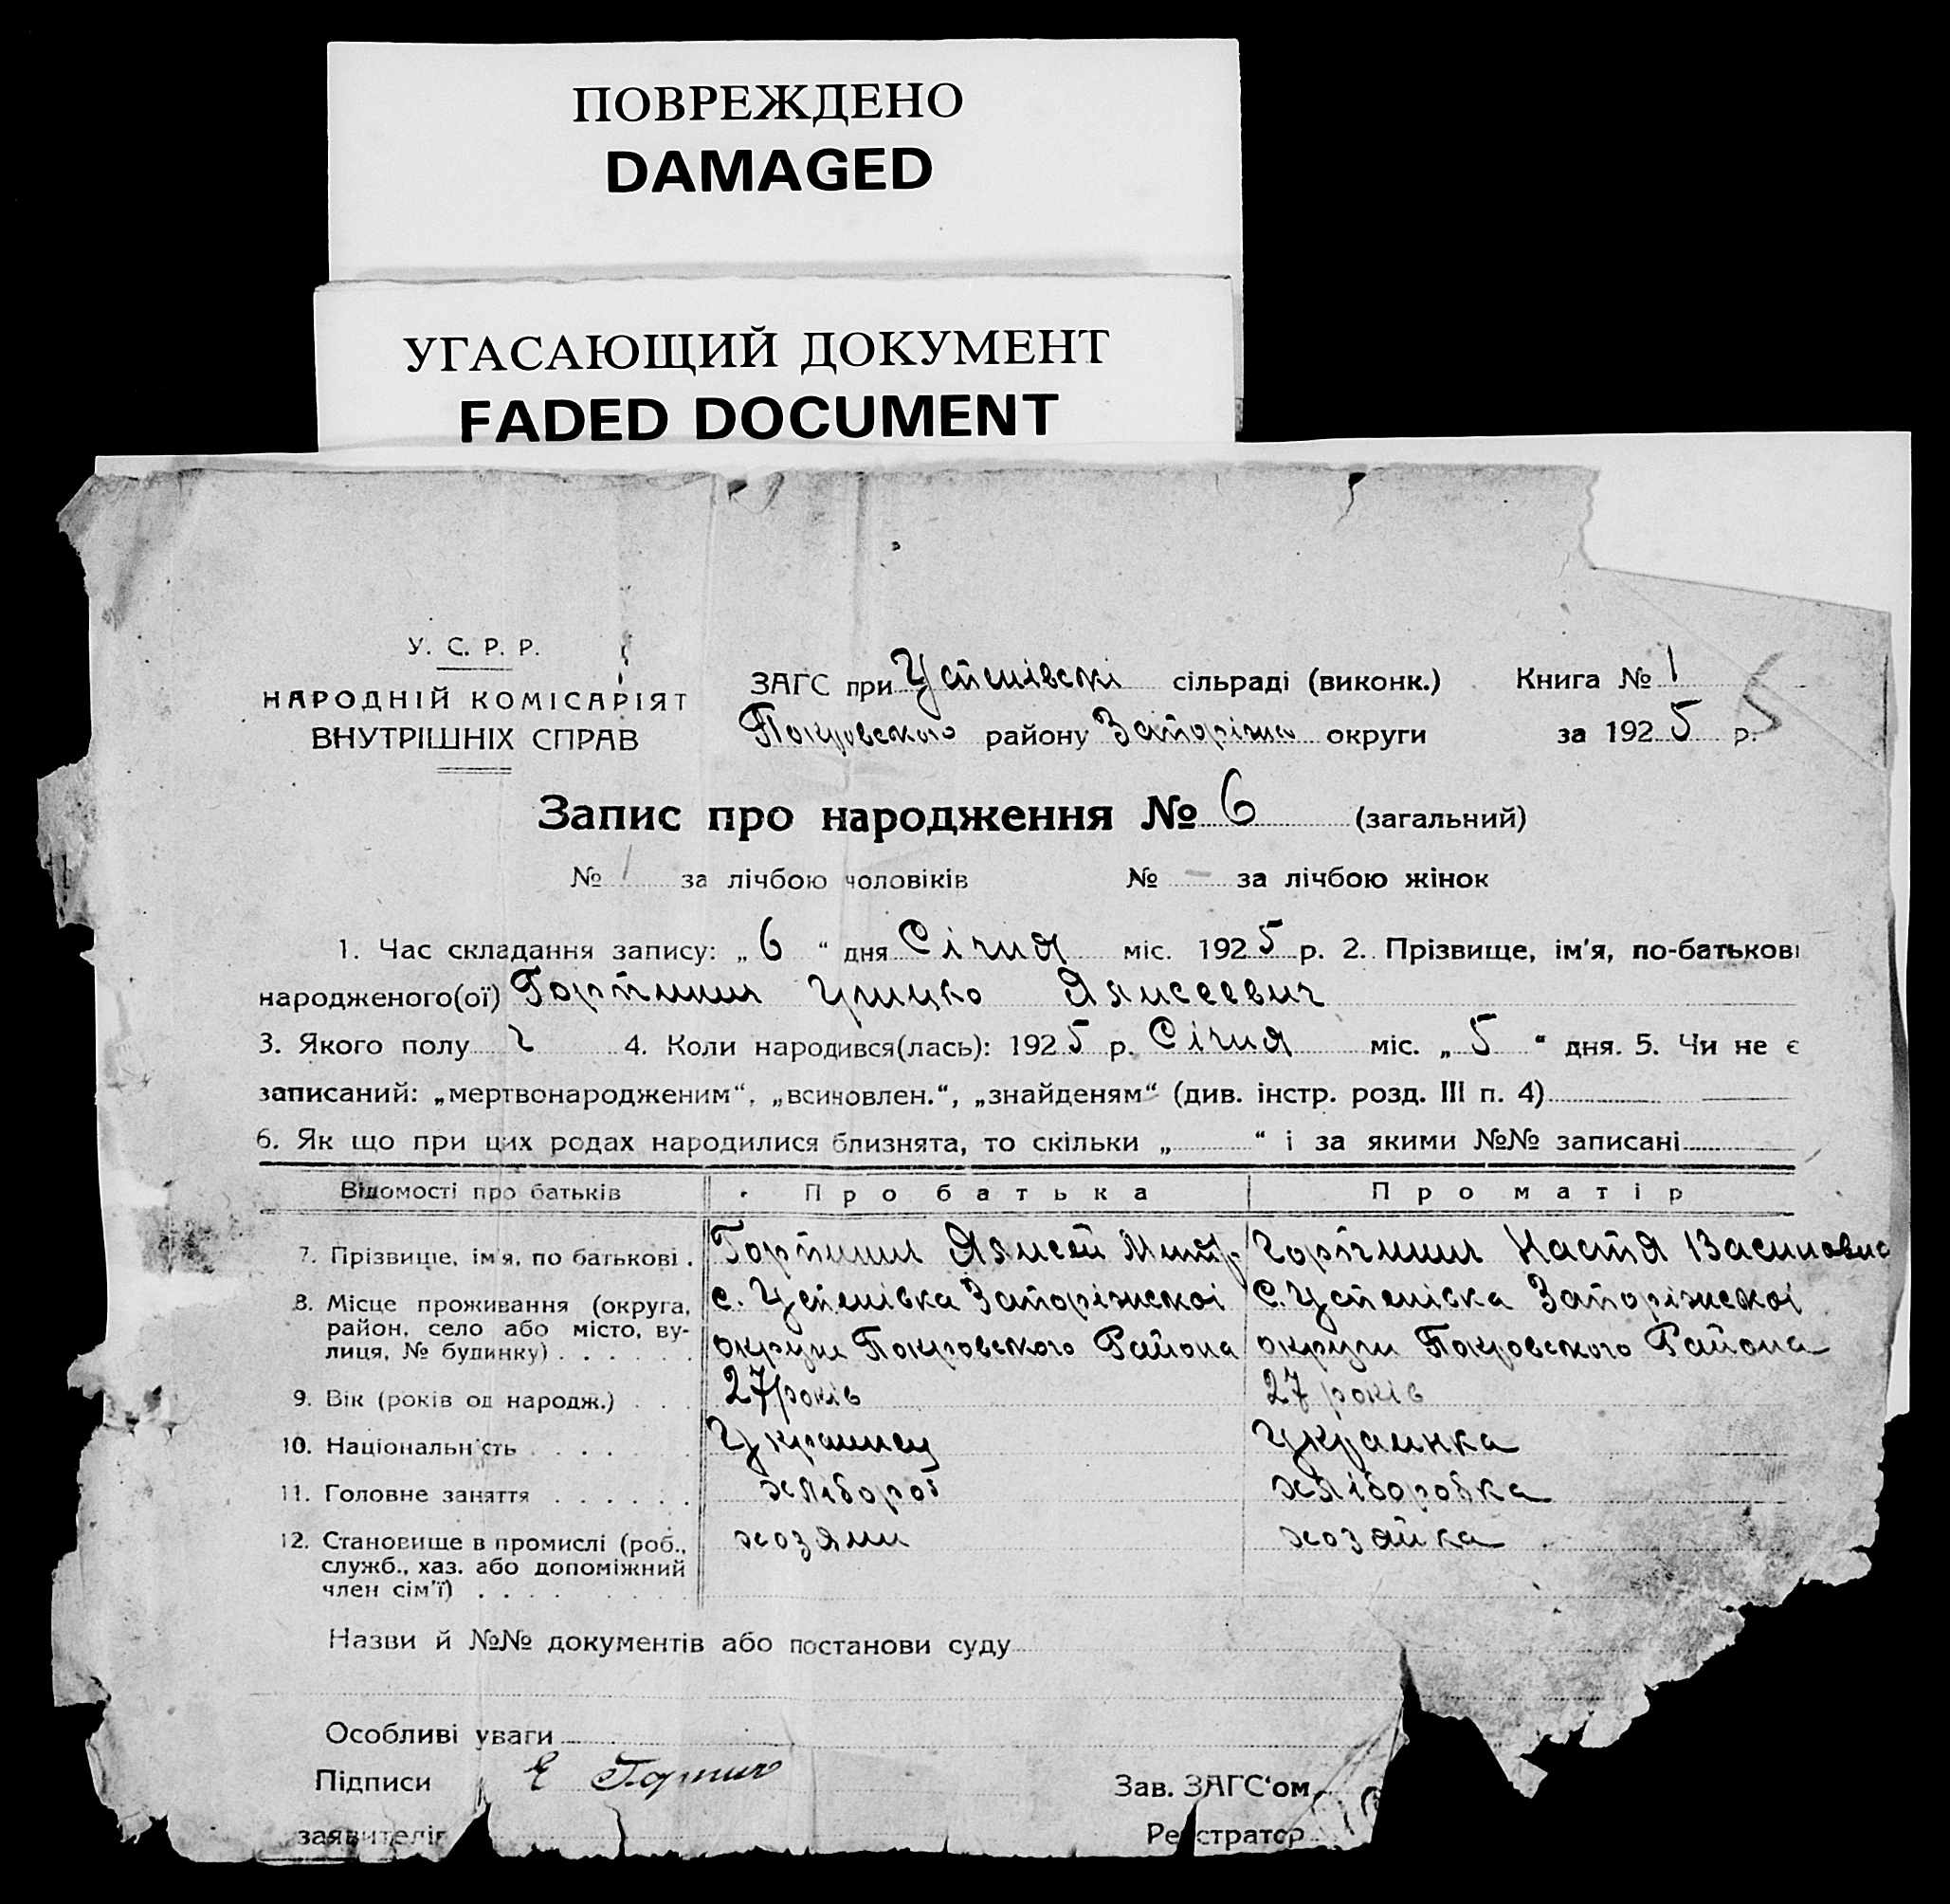 ПОВРЕЖДЕНО
DAMAGED
УГАСАЮЩИЙ ДОКУМЕНТ
FADED DOCUMENT
У. С. Р. Р.
НАРОДНІЙ КОМІСАРІЯТ
ВНУТРІШНІХ СПРАВ
ЗАГС при Успенівскі сільраді (виконк.) Книга № 1
Покровского району Запоріжа округи за 1925 р.
Запис про народження № 6 (загальний)
№ 1 за лічбою чоловіків № - за лічбою жінок
1. Час складання запису: „ 6 “ дня Січня міс. 1925 р. 2. Прізвище, ім'я, по-батькові
народженого(ої) Горпинич Грицко Ялисеевич
3. Якого полу ч 4. Коли народився(лась): 1925 р. Січня міс. „ 5 “ дня. 5. Чи не є
записаний: „мертвонародженим“, „всиновлен.“, „знайденям“ (див. інстр. розд. III п. 4)
6. Як що при цих родах народилися близнята, то скільки „ “ і за якими №№ записані
Відомості про батьків Про батька Про матір
7. Прізвище, ім'я, по батькові . Ялисей Митр. Настя Василовна
8. Місце проживання (округа, с. Успенівка Запоріжскоі С. Успенівка Запоріжскоі
район, село або місто, ву-
лиця, № будинку) . . . . . . округи Покровского Района округи Покровского Района
9. Вік (років од народж.) . . . 27 років 27 років
10. Національність . . . . . . . Украинец Украинка
11. Головне заняття . . . . . . хлібороб хліборобка
12. Становище в промислі (роб., хозяин хозяйка
служб., хаз. або допоміжний
член сім'ї) . . . . . . . . .
Назви й №№ документів або постанови суду
Особливі уваги
Підписи Е Зав. ЗАГС‘ом
заявителів Реєстратор